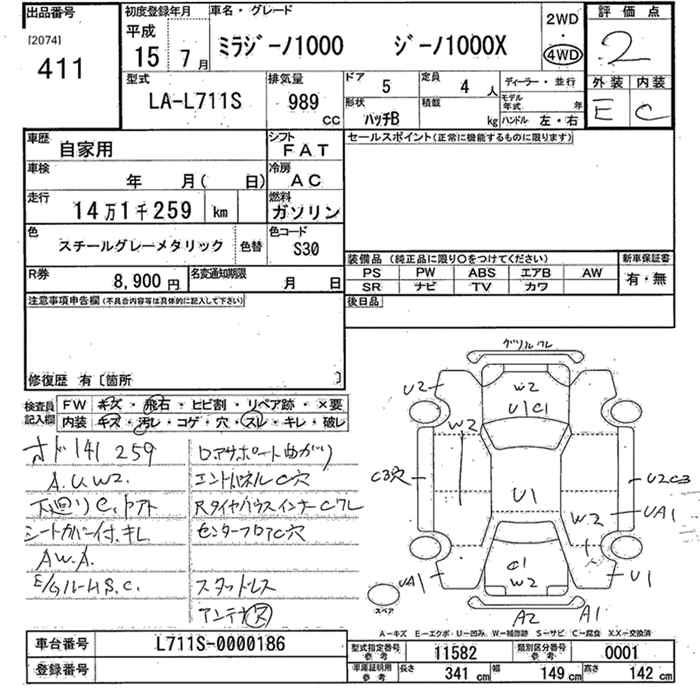 出品番号 初度登録年月 車名・グレード 2WD 評価点
[2074] 平成 4WD 2
411 15年 7月 ミラジーノ1000 ジーノ1000X
外装 内装
E C
型式 排気量 ドア 5 定員 4人 ディーラー・並行
LA-L711S 989 CC 形状 ハッチB 積載 kg モデル年式 年
ハンドル 左・右
車歴 自家用 シフト FAT セールスポイント(正常に機能するものに限ります)
車検 年 月( 日) 冷房 AC
走行 14万1千259 km 燃料 ガソリン
色 スチールグレーメタリック 色替 色コード S30
装備品 (純正品に限り〇をつけてください) 新車保証書
PS PW ABS エアB AW 有・無
SR ナビ TV カワ
R券 8,900円 名変通知期限 月 日
後日品
注意事項申告欄(不具合内容等は具体的に記入して下さい)
修復歴 有〔箇所 〕
検査員記入欄 FW キズ・飛石・ヒビ割・リペア跡・×要
内装 キズ・汚レ・コゲ・穴・スレ・キレ・破レ
オド141259 ロアサポート曲がり
A.U.W2. エンドパネルC穴
下廻りC.下アト Rタイヤハウスインナーワレ
シートカバー付.キレ センターフロアC穴
AW.A.
E/Gルーム S.C. スタッドレス
アンテナ欠
グリルワレ
U2 W2
U1C1
W2
C3穴 U2C3
U1 UA1
W2
UA1 C1 U1
W2
スペア A2 A1
A-キズ E-エクボ・U-凹み、W-補修跡 S-サビ C-腐食 X.XX-交換済
車台番号 L711S-0000186 型式指定番号参考 11582 類別区分番号参考 0001
登録番号 車庫証明用参考 長さ 341 cm 幅 149 cm 高さ 142 cm